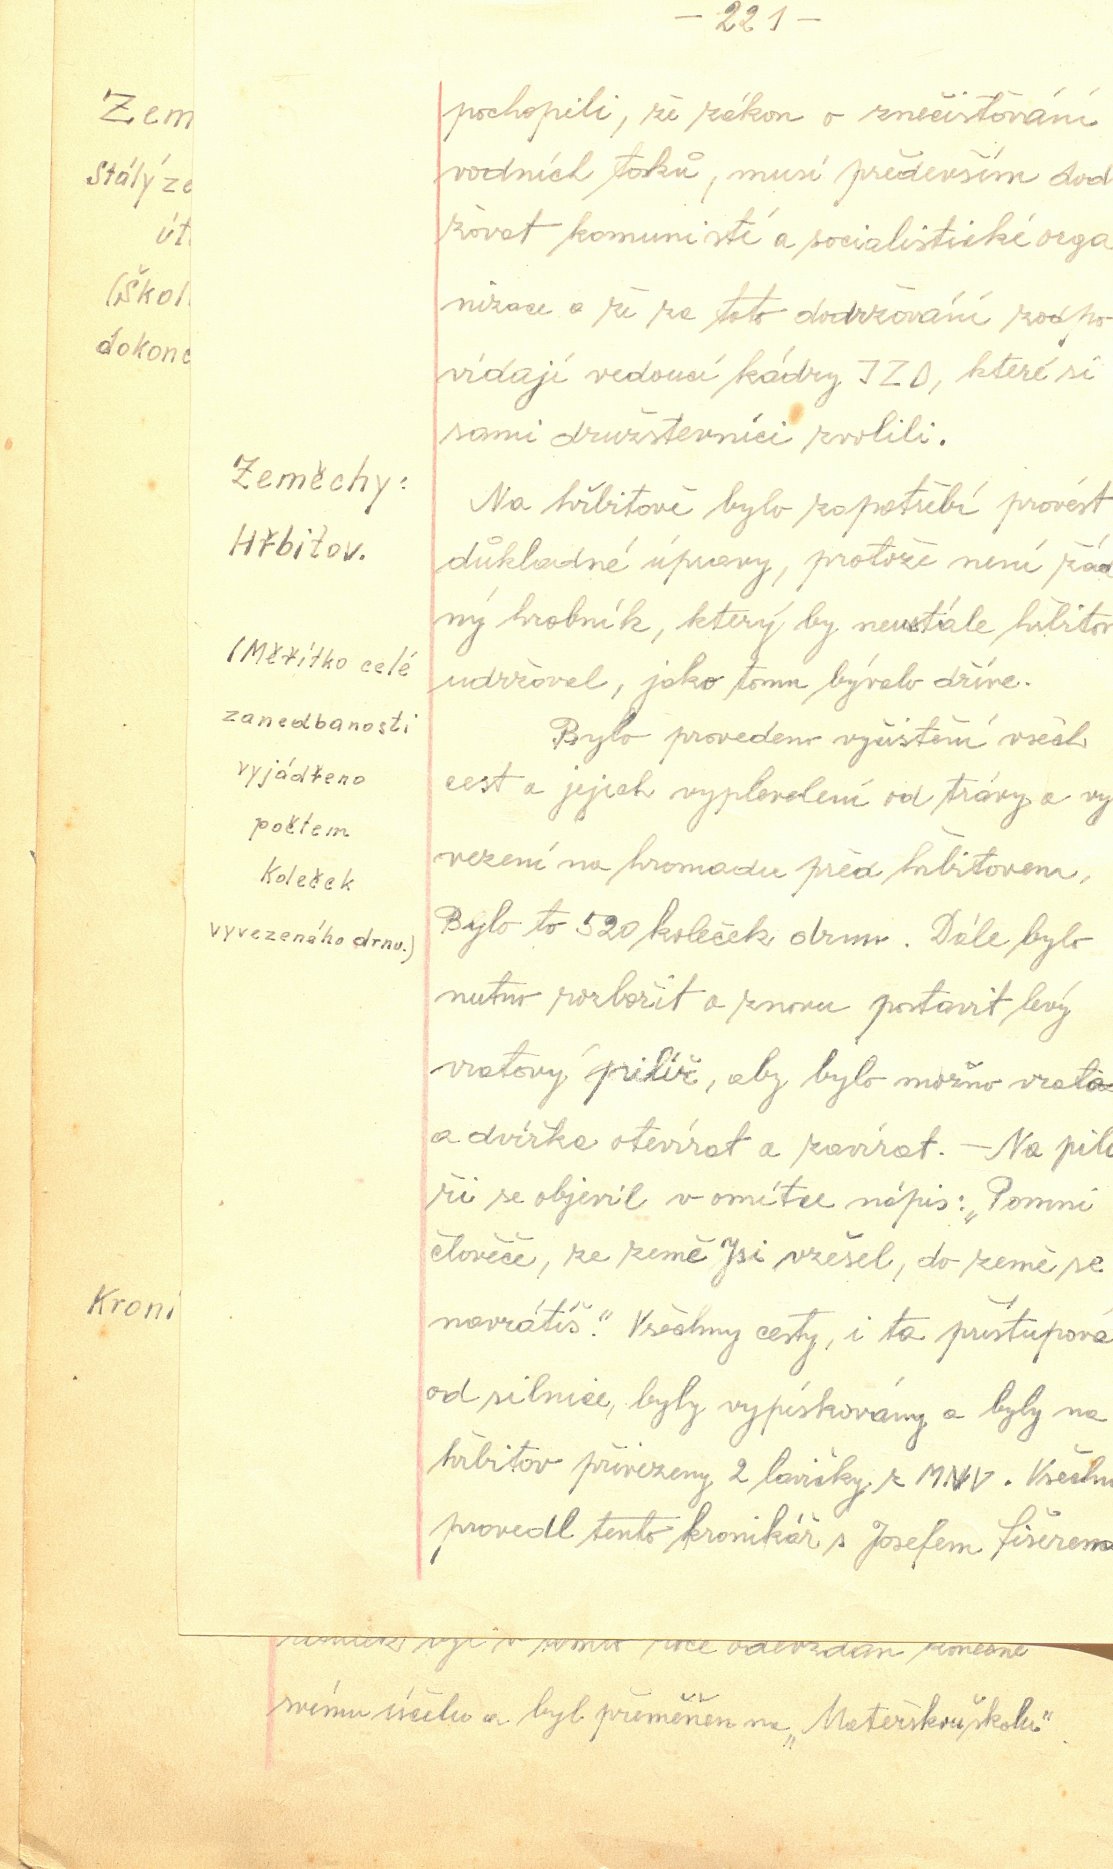 - 221 -
pochopili, že zákon o znečisťování
vodních toků, musí především dod
žovat komunisté a socialistické orga
nizace a že za toto dodržování zodpo
vídají vedoucí kádry JZD, které si
sami družstevníci zvolili.
Zeměchy:
Hřbitov.
Na hřbitově bylo zapotřebí provést
důkladné úpravy, protože není žád
ný hrobník, který by neustále hřbitov
udržoval, jako tomu bývalo dříve.
(Měřítko celé
zanedbanosti
vyjádřeno
počtem
koleček
vyvezeného drnu.)
Bylo provedeno vyčistění všech
cest a jejich vyplevelení od trávy a vy
vezení na hromadu před hřbitovem,
Bylo to 520 koleček drnu. Dále bylo
nutno rozbořit a znovu postavit levý
vratový pilíř, aby bylo možno vrata
a dvířka otevírat a zavírat. - Na pilí
ři se objevil v omítce nápis: „Pomni
člověče, ze země Jsi vzešel, do země se
navrátíš." Všechny cesty, i ta přístupová
od silnice, byly vypískovány a byly na
hřbitov přivezeny 2 lavičky z MNV. Všechn
provedl tento kronikář s Josefem Fišerem
Zem
Stálý ze
út
(Škol
dokonč
Kroni
byl v tomto roce odevzdán
svému účelu a byl přeměněn na „Mateřskou školu"